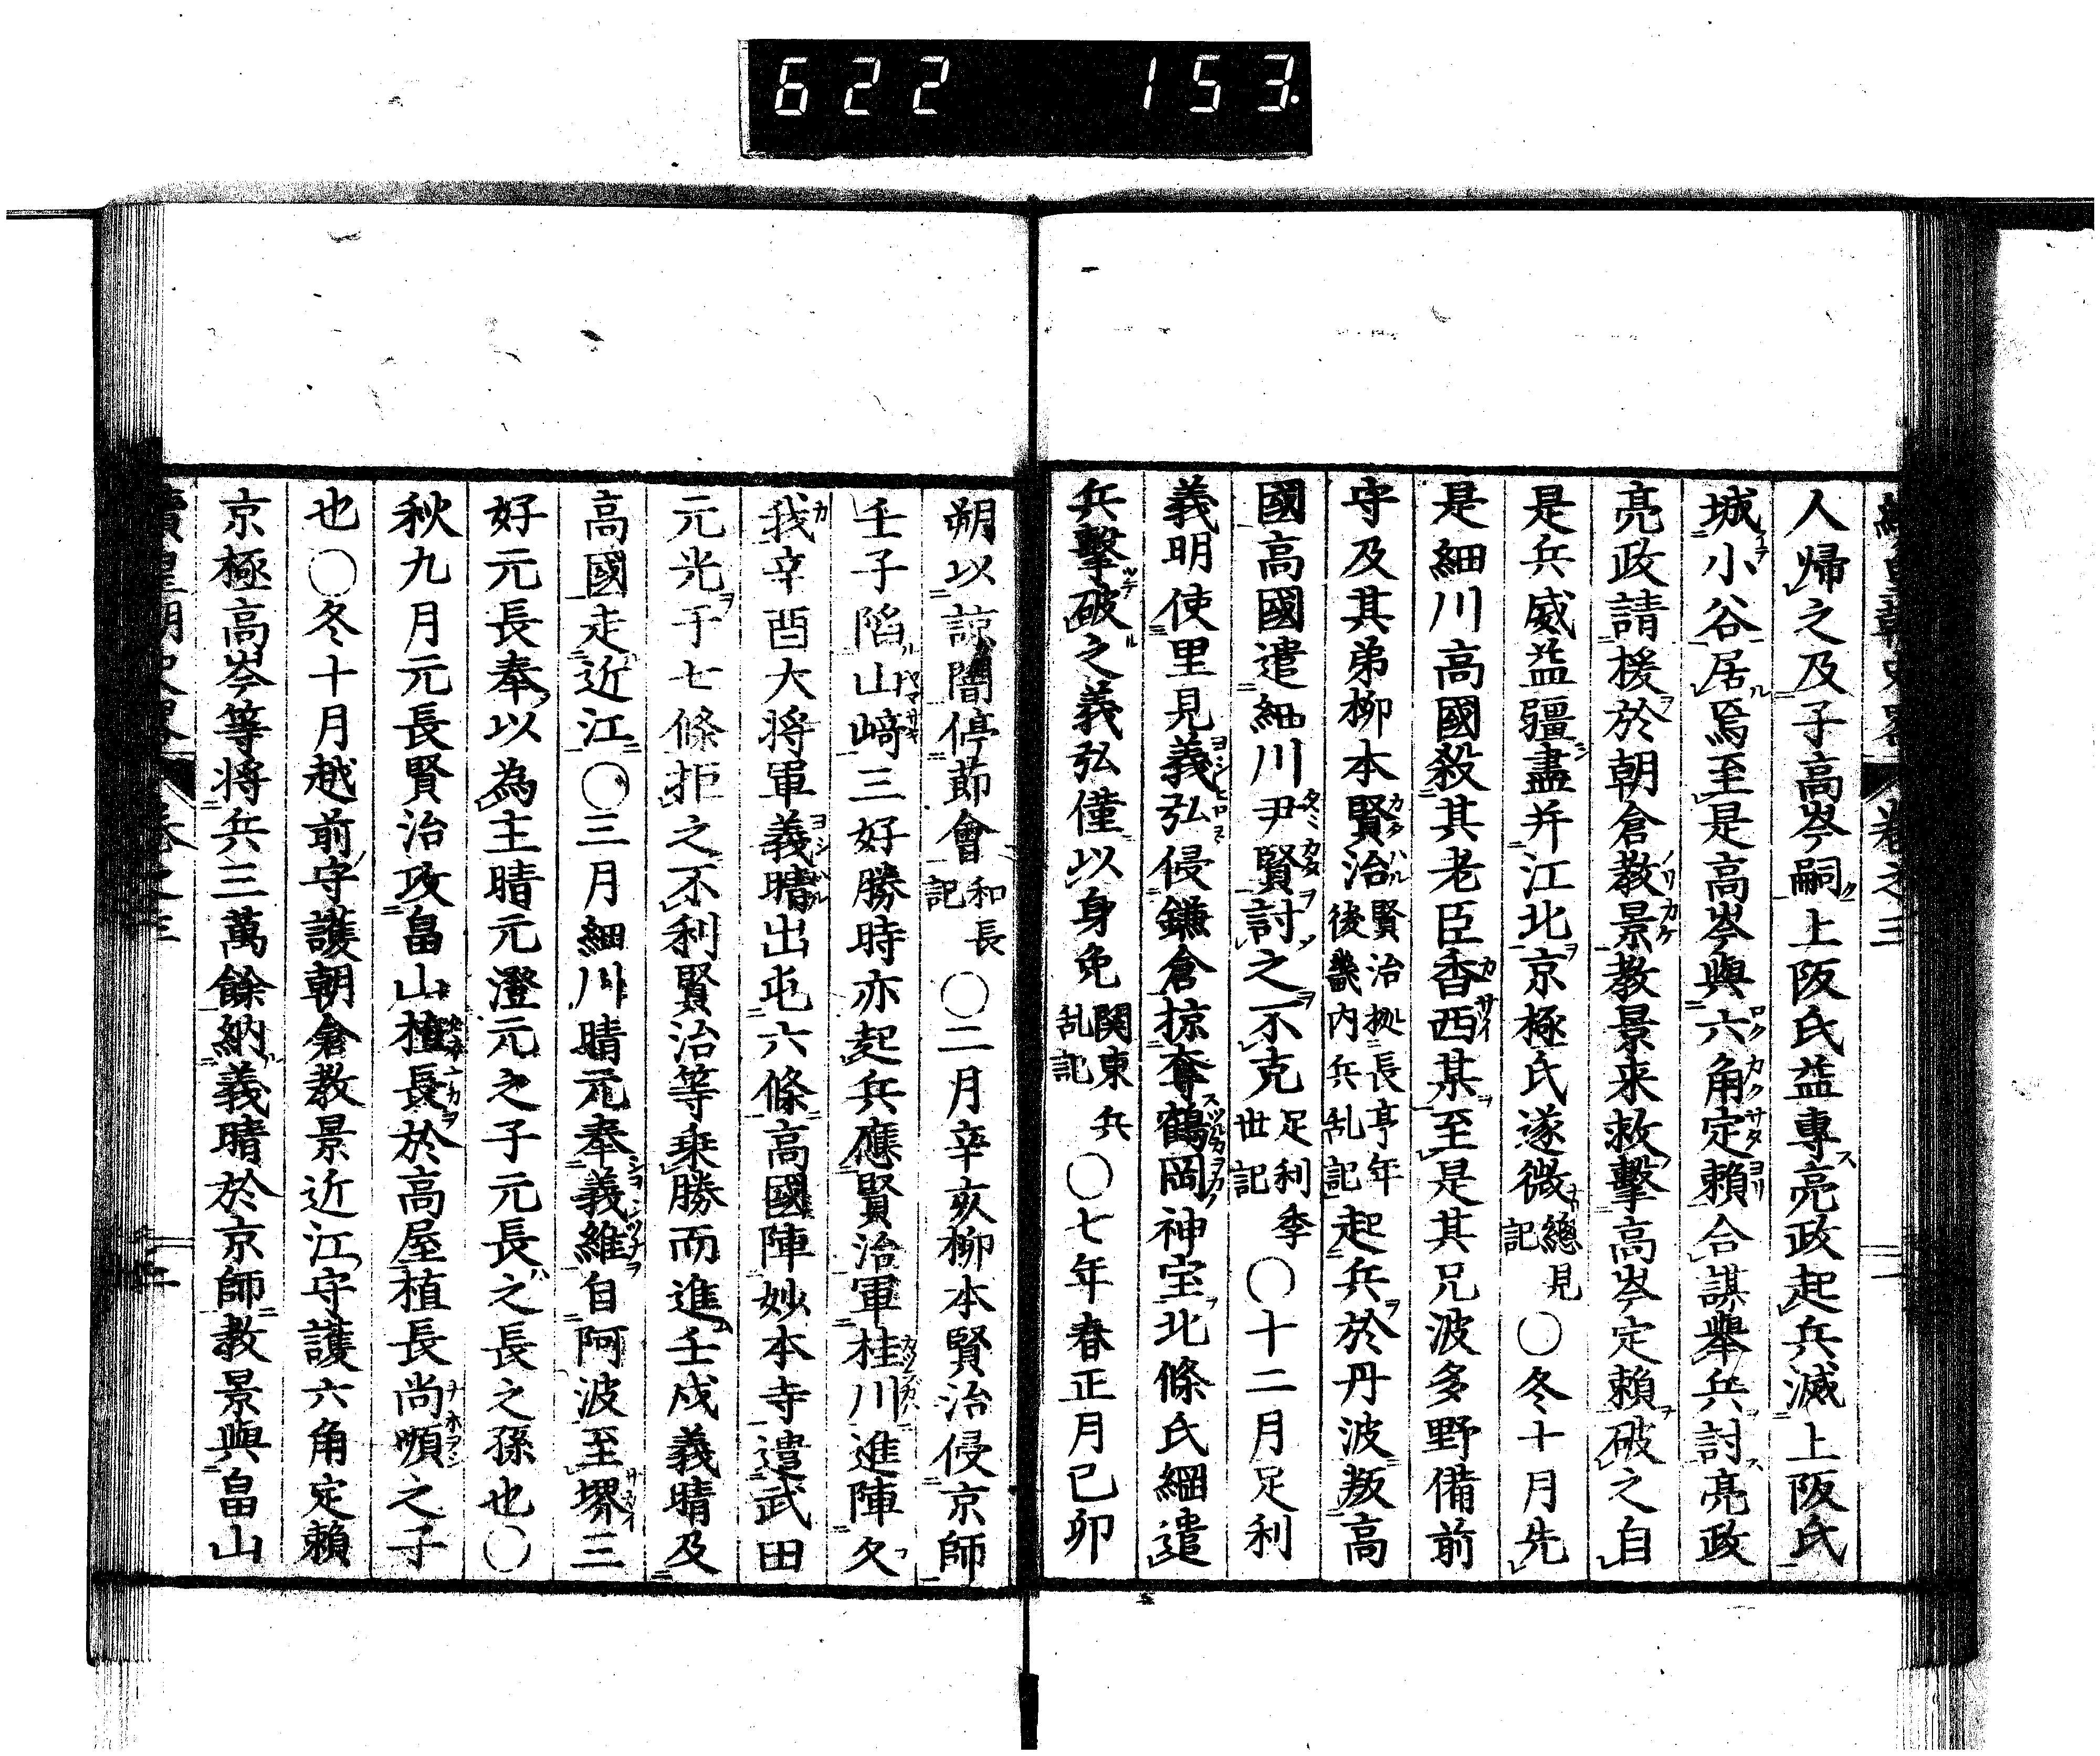 622 153.
人歸之及子高岑嗣上阪氏益專亮政起兵滅上阪氏
城小谷居焉至是高岑與六角定賴合謀舉兵討亮政
亮政請援於朝倉教景教景来救擊高岑定賴破之自
是兵威益彊盡并江北京極氏遂微總見記〇冬十月先
是細川高國殺其老臣香西某至是其兄波多野備前
守及其弟柳本賢治賢治拠長亭年後畿内兵乱記起兵於丹波叛高
國高國遣細川尹賢討之不克足利季世記〇十二月足利
義明使里見義弘侵鎌倉掠奪鶴岡神宝北條氏綱遣
兵擊破之義弘僅以身免関東兵乱記〇七年春正月己卯
朔以諒闇停節會和長記〇二月辛亥柳本賢治侵京師
壬子陷山﨑三好勝時亦起兵應賢治軍桂川進陣久
我辛酉大将軍義晴出屯六條高國陣妙本寺遣武田
元光于七條拒之不利賢治等乗勝而進壬戌義晴及
高國走近江〇三月細川晴元奉義維自阿波至堺三
好元長奉以為主晴元澄元之子元長之長之孫也〇
秋九月元長賢治攻畠山植長於高屋植長尚順之子
也〇冬十月越前守護朝倉教景近江守護六角定賴
京極高岑等将兵三萬餘納義晴於京師教景與畠山